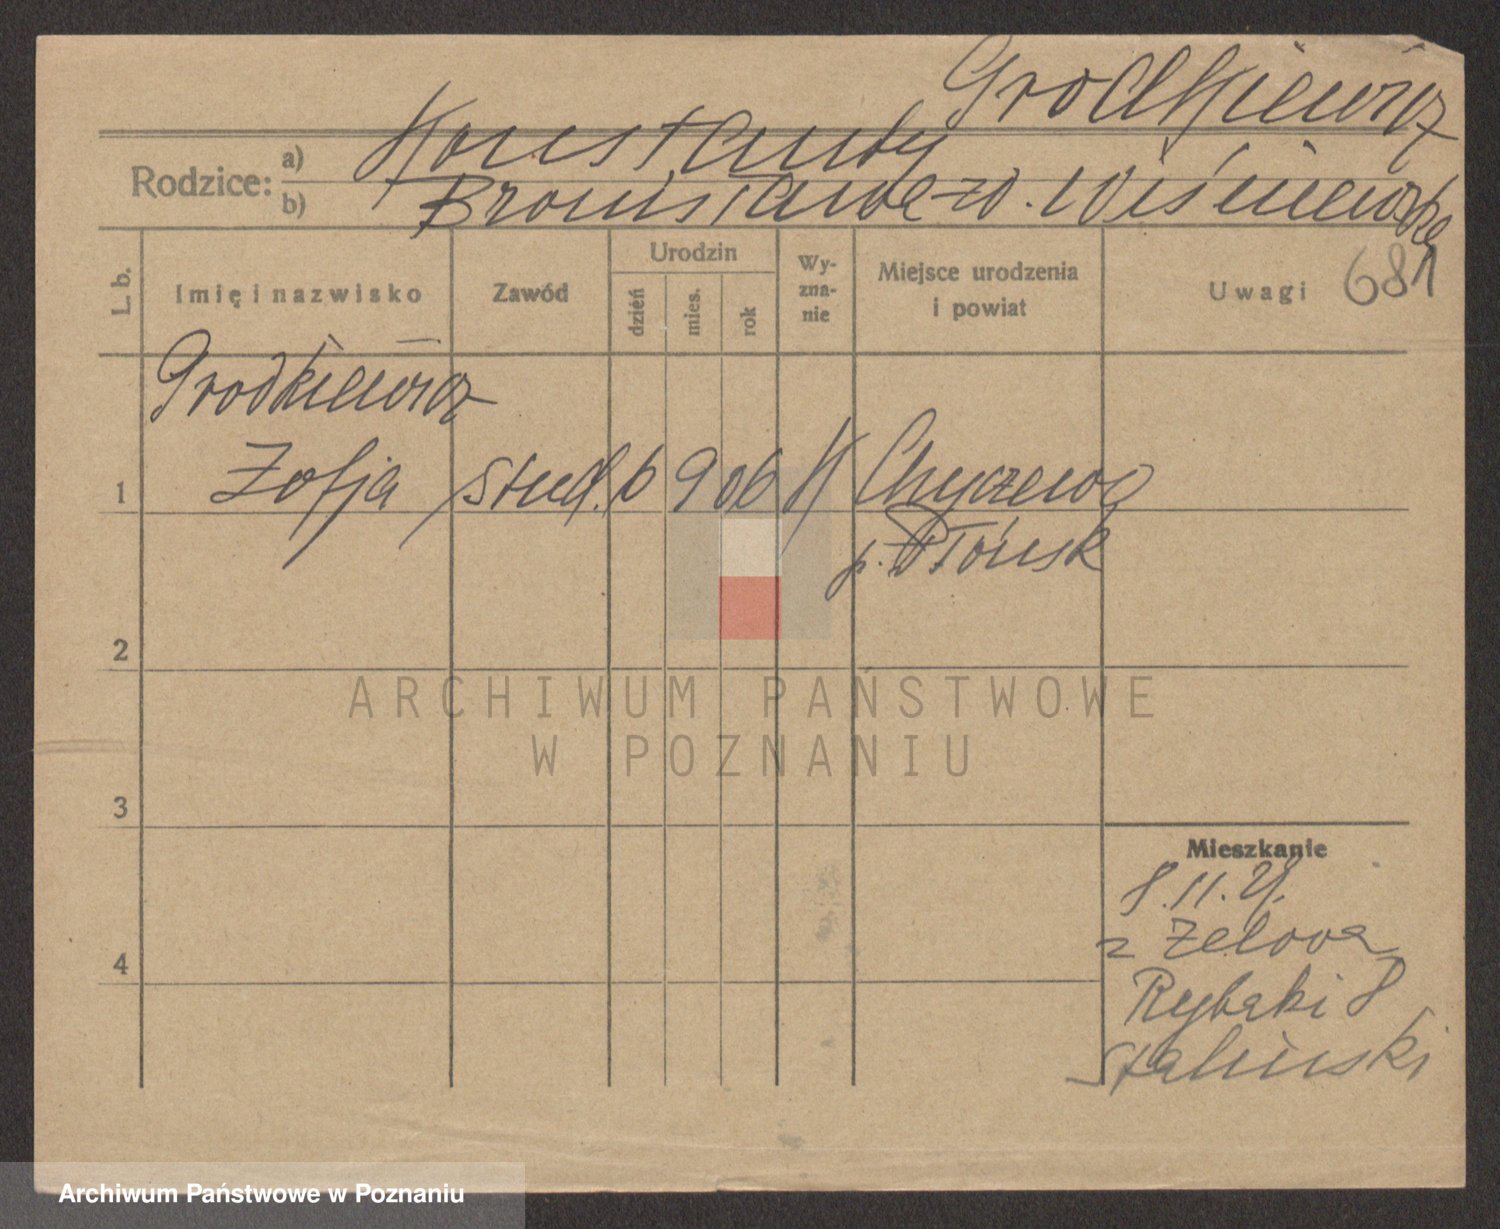 Grodkiewicz
Rodzice: a) Konstanty
b) Bronisława z d. Wiśniewska
L. b. Imię i nazwisko Zawód Urodzin dzień mies. rok Wy-zna-nie Miejsce urodzenia i powiat Uwagi 681
Grodkiewicz
1 Zofja stud. 6 9 06 K
p. Płońsk
2
ARCHIWUM PAŃSTWOWE
W POZNANIU
3
Mieszkanie
8.11.
z Zelowa
4
Rybaki 8
Staliński
Archiwum Państwowe w Poznaniu